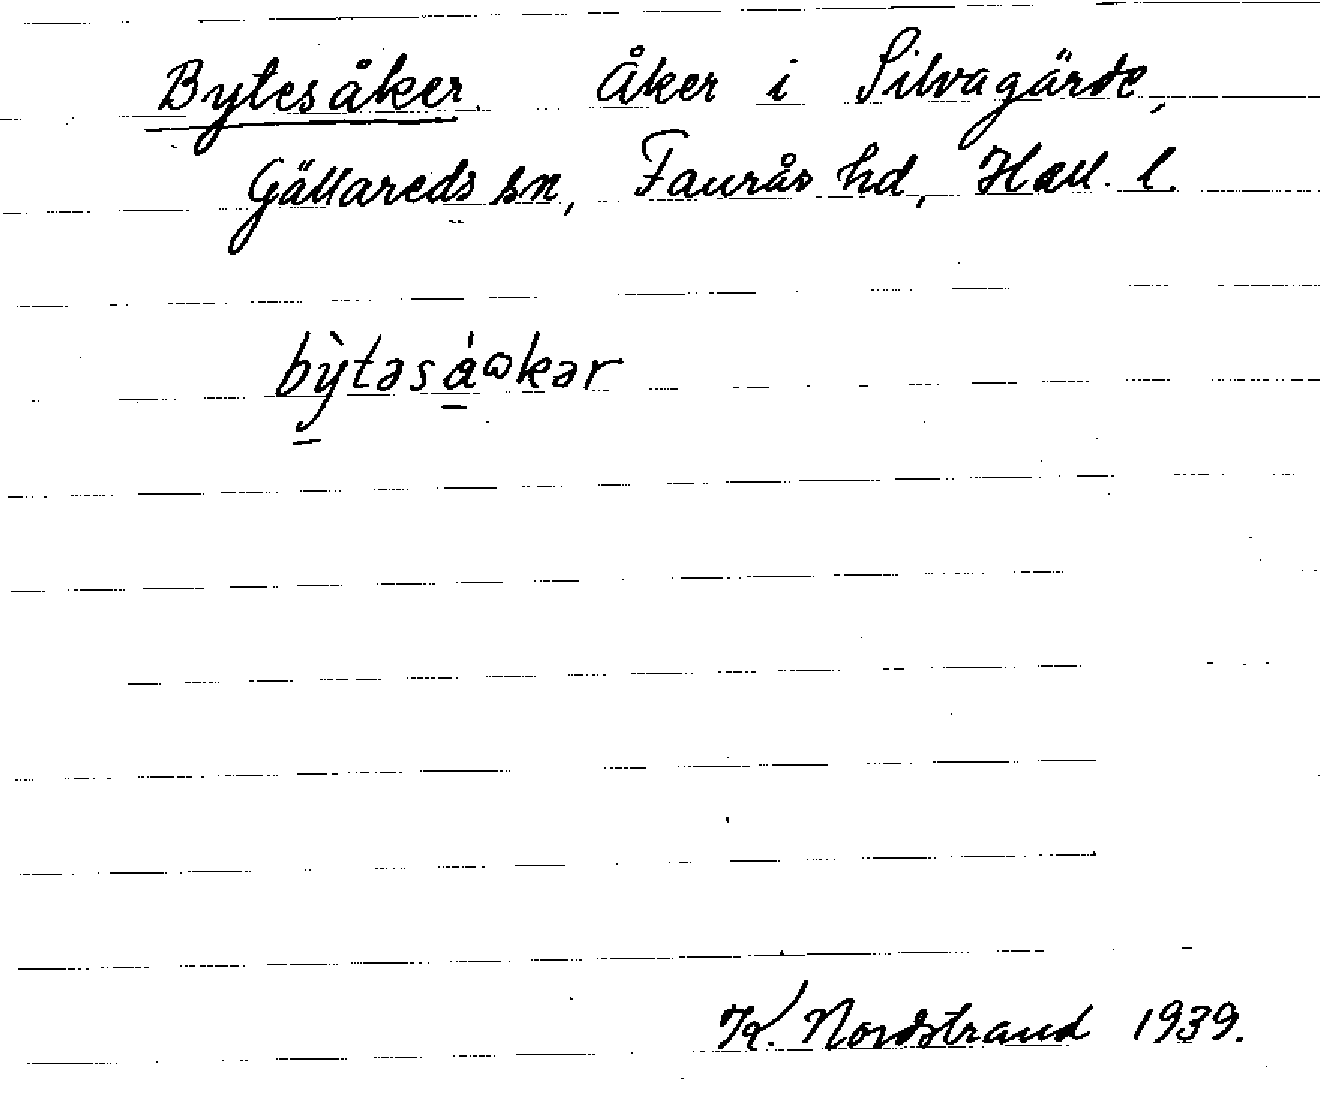 Bytesåker. Åker i Silvagärde,
Gällareds sn, Faurås hd, Hall. l.
bỳtəsåωkər
K. Nordstrand 1939.